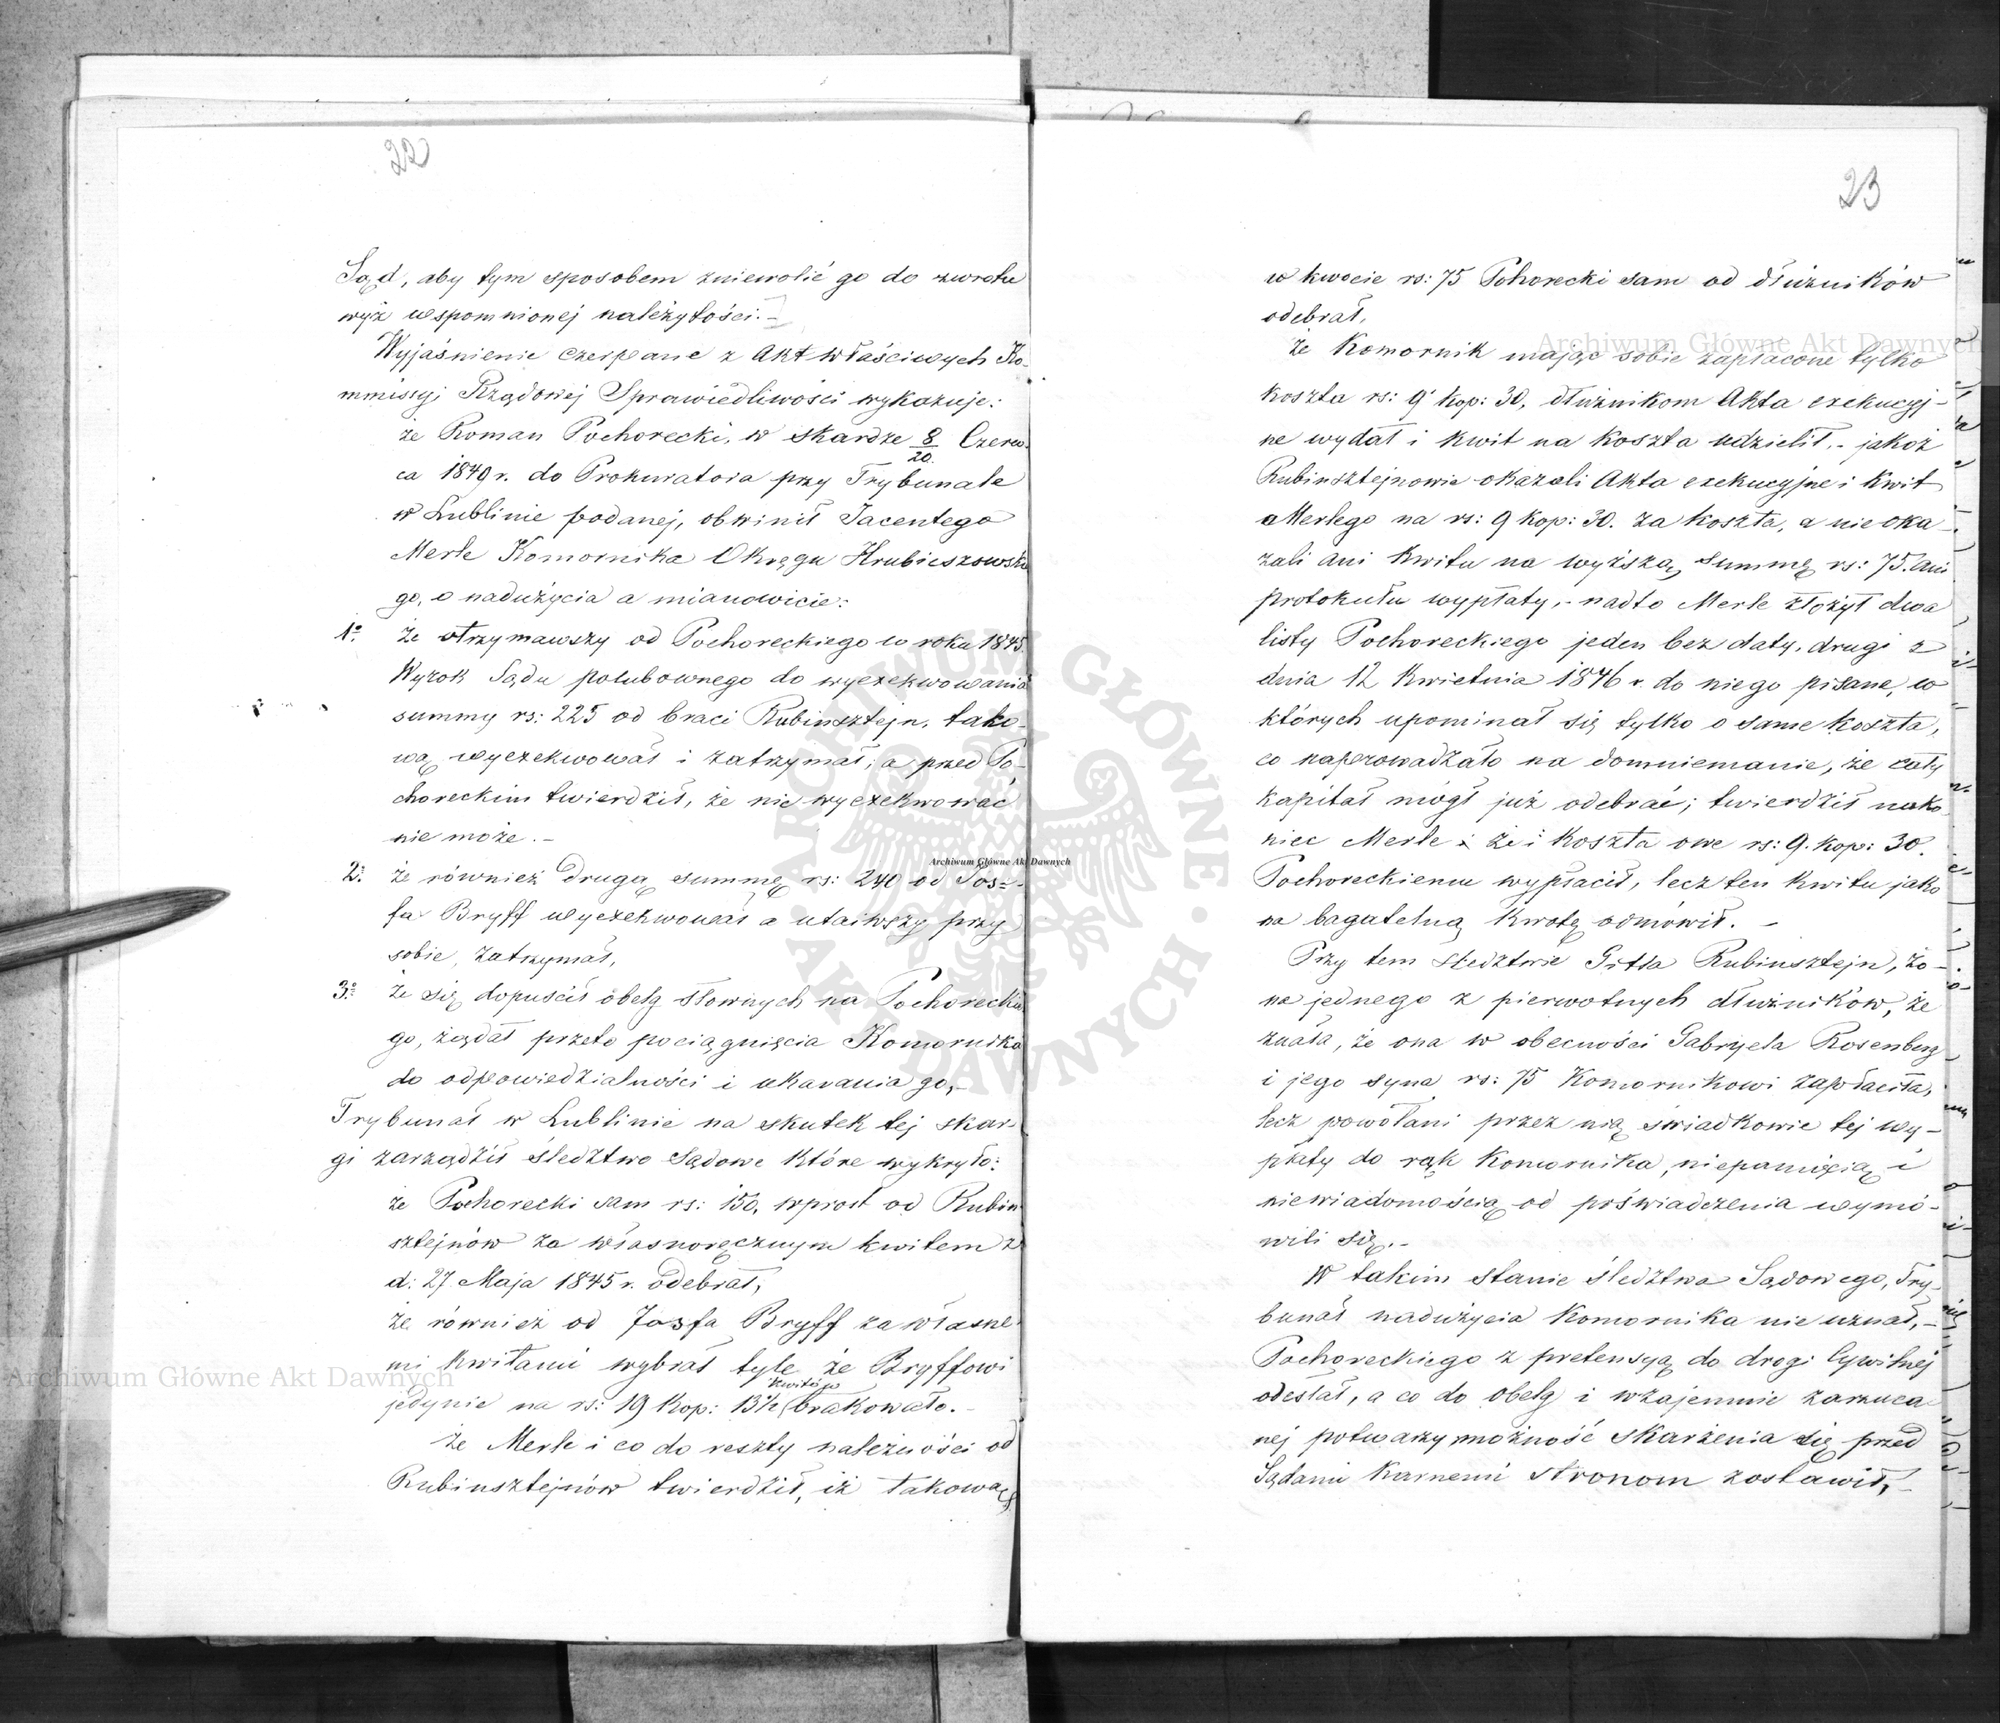 22
Sąd, aby tym sposobem zniewolić go do zwrotu
wyż wspomnionej należytości. –
Wyjaśnienie czerpane z Akt właściwych Ko-
mmissyi Rządowej Sprawiedliwości wykazuje:
że Roman Pochorecki, w skardze 8/20 Czerw-
ca 1849 r. do Prokuratora przy Trybunale
w Lublinie podanej, obwinił Jacentego
Merle Komornika Okręgu Hrubieszowskie
go, o nadużycia a mianowicie:
1o że otrzymawszy od Pochoreckiego w roku 1845
Wyrok Sądu polubownego do wyexekwowania
summy rs: 225 od braci Rubinsztejn, tako-
wą wyexekwował i zatrzymał; a przed Po-
choreckim twierdził, że nic wyexekwować
nie może. –
2o że również drugą summę rs: 240 od Jos-
fa Bryff wyexekwował a utaiwszy przy
sobie, zatrzymał,
3o że się dopuścił obelg słownych na Pochoreckie
go, żądał przeto pociągnięcia Komornika
do odpowiedzialności i ukarania go, –
Trybunał w Lublinie na skutek tej skar-
gi zarządził śledztwo Sądowe które wykryło:
że Pochorecki sam rs: 150, wprost od Rubin
sztejnów za własnoręcznym kwitem z
d: 27 Maja 1845 r. odebrał,
że również od Josfa Bryff za własne
mi kwitami wybrał tyle że Bryffowi
jedynie na rs: 19 kop: 13½ kwitów brakowało. –
że Merle i co do reszty należności od
Rubinsztejnów twierdził, iż takową
23
w kwocie rs: 75 Pohorecki sam od dłużników
odebrał,
że Komornik mając sobie zapłacone tylko
koszta rs: 9 kop: 30, dłużnikom Akta exekucyj-
ne wydał i kwit na koszta udzielił, – jakoż
Rubinsztejnowie okazali Akta exekucyjne i kwit
Merlego na rs: 9 kop: 30. za koszta, a nie oka-
zali ani kwitu na wyższą summę rs: 75. ani
protokułu wypłaty, – nadto Merle złożył dwa
listy Pochoreckiego jeden bez daty, drugi z
dnia 12 Kwietnia 1846 r. do niego pisane, w
których upominał się tylko o same koszta,
co naprowadzało na domniemanie, że cały
kapitał mógł już odebrać; twierdził nako
niec Merle że i koszta owe rs: 9. kop: 30.
Pochoreckiemu wypłacił, lecz ten kwitu jako
na bagatelną kwotę odmówił. –
Przy tem śledztwie Gitla Rubinsztejn, żo-
na jednego z pierwotnych dłużników, ze
znała, że ona w obecności Gabryela Rosenberg
i jego syna rs: 75 Komornikowi zapłaciła,
lecz powołani przez nią świadkowie tej wy-
płaty do rąk Komornika, niepamięcią i
niewiadomością od poświadczenia wymó-
wili się. –
W takim stanie śledztwa Sądowego, Try-
bunał nadużycia Komornika nie uznał, –
Pochoreckiego z pretensyą do drogi Cywilnej
odesłał, a co do obelg i wzajemnie zarzuca
nej potwarzy możność skarżenia się przed
Sądami Karnemi stronom zostawił, –
Archiwum Główne Akt Dawnych
Archiwum Główne Akt Dawnych
Archiwum Główne Akt Dawnych
ARCHIWUM GŁÓWNE AKT DAWNYCH